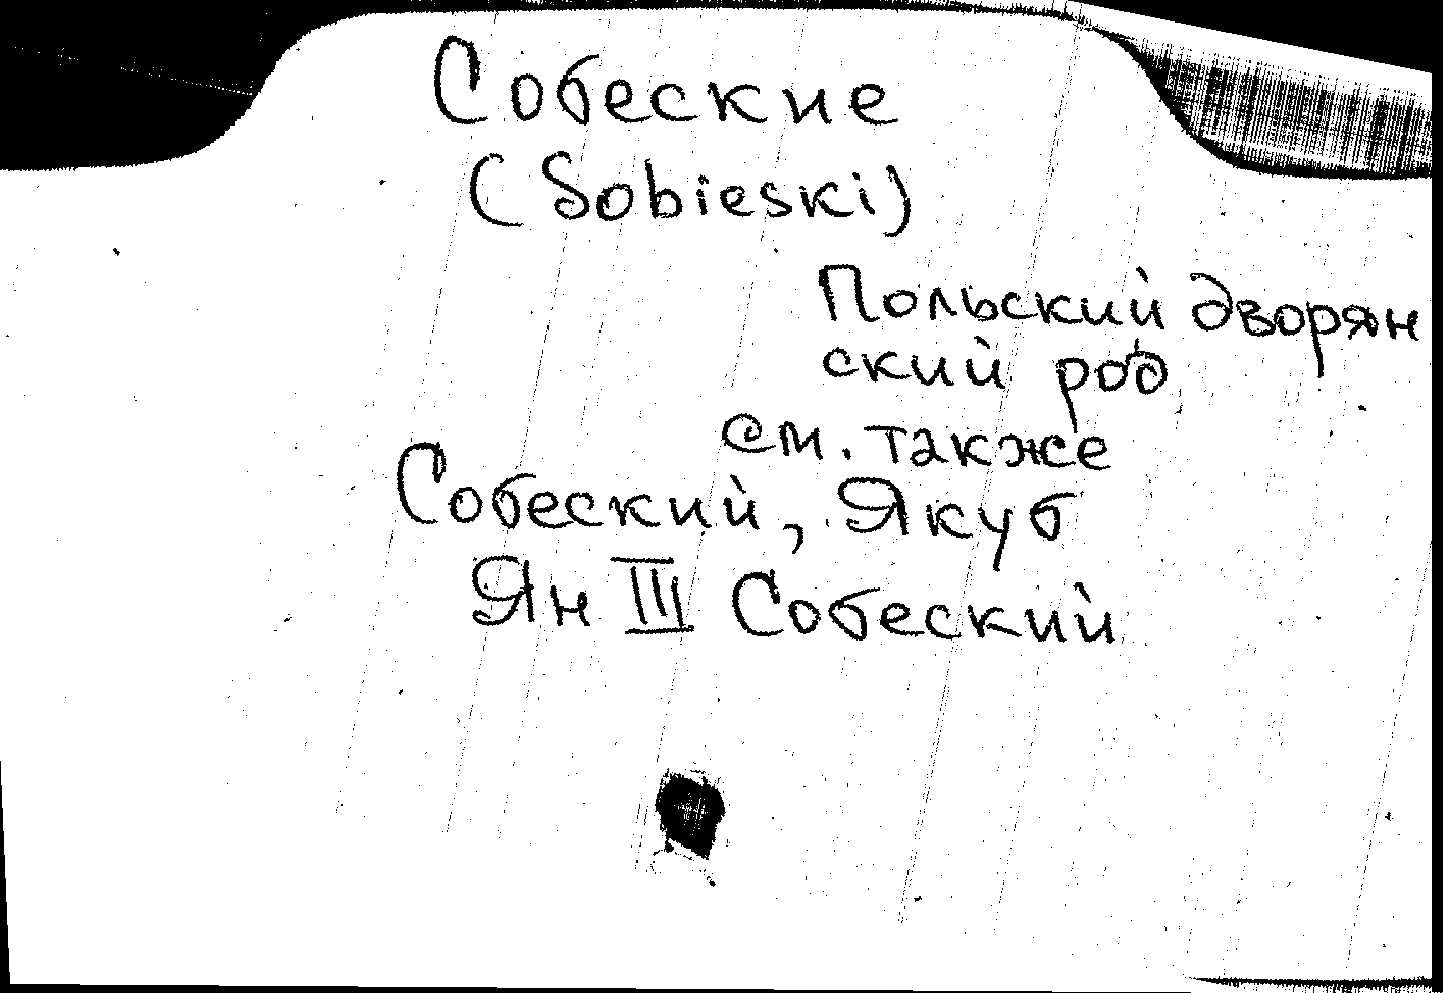 Собеские
(Sobieski)
Польский дворян
ский род
см. также
Собеский, Якуб
Ян III Собеский